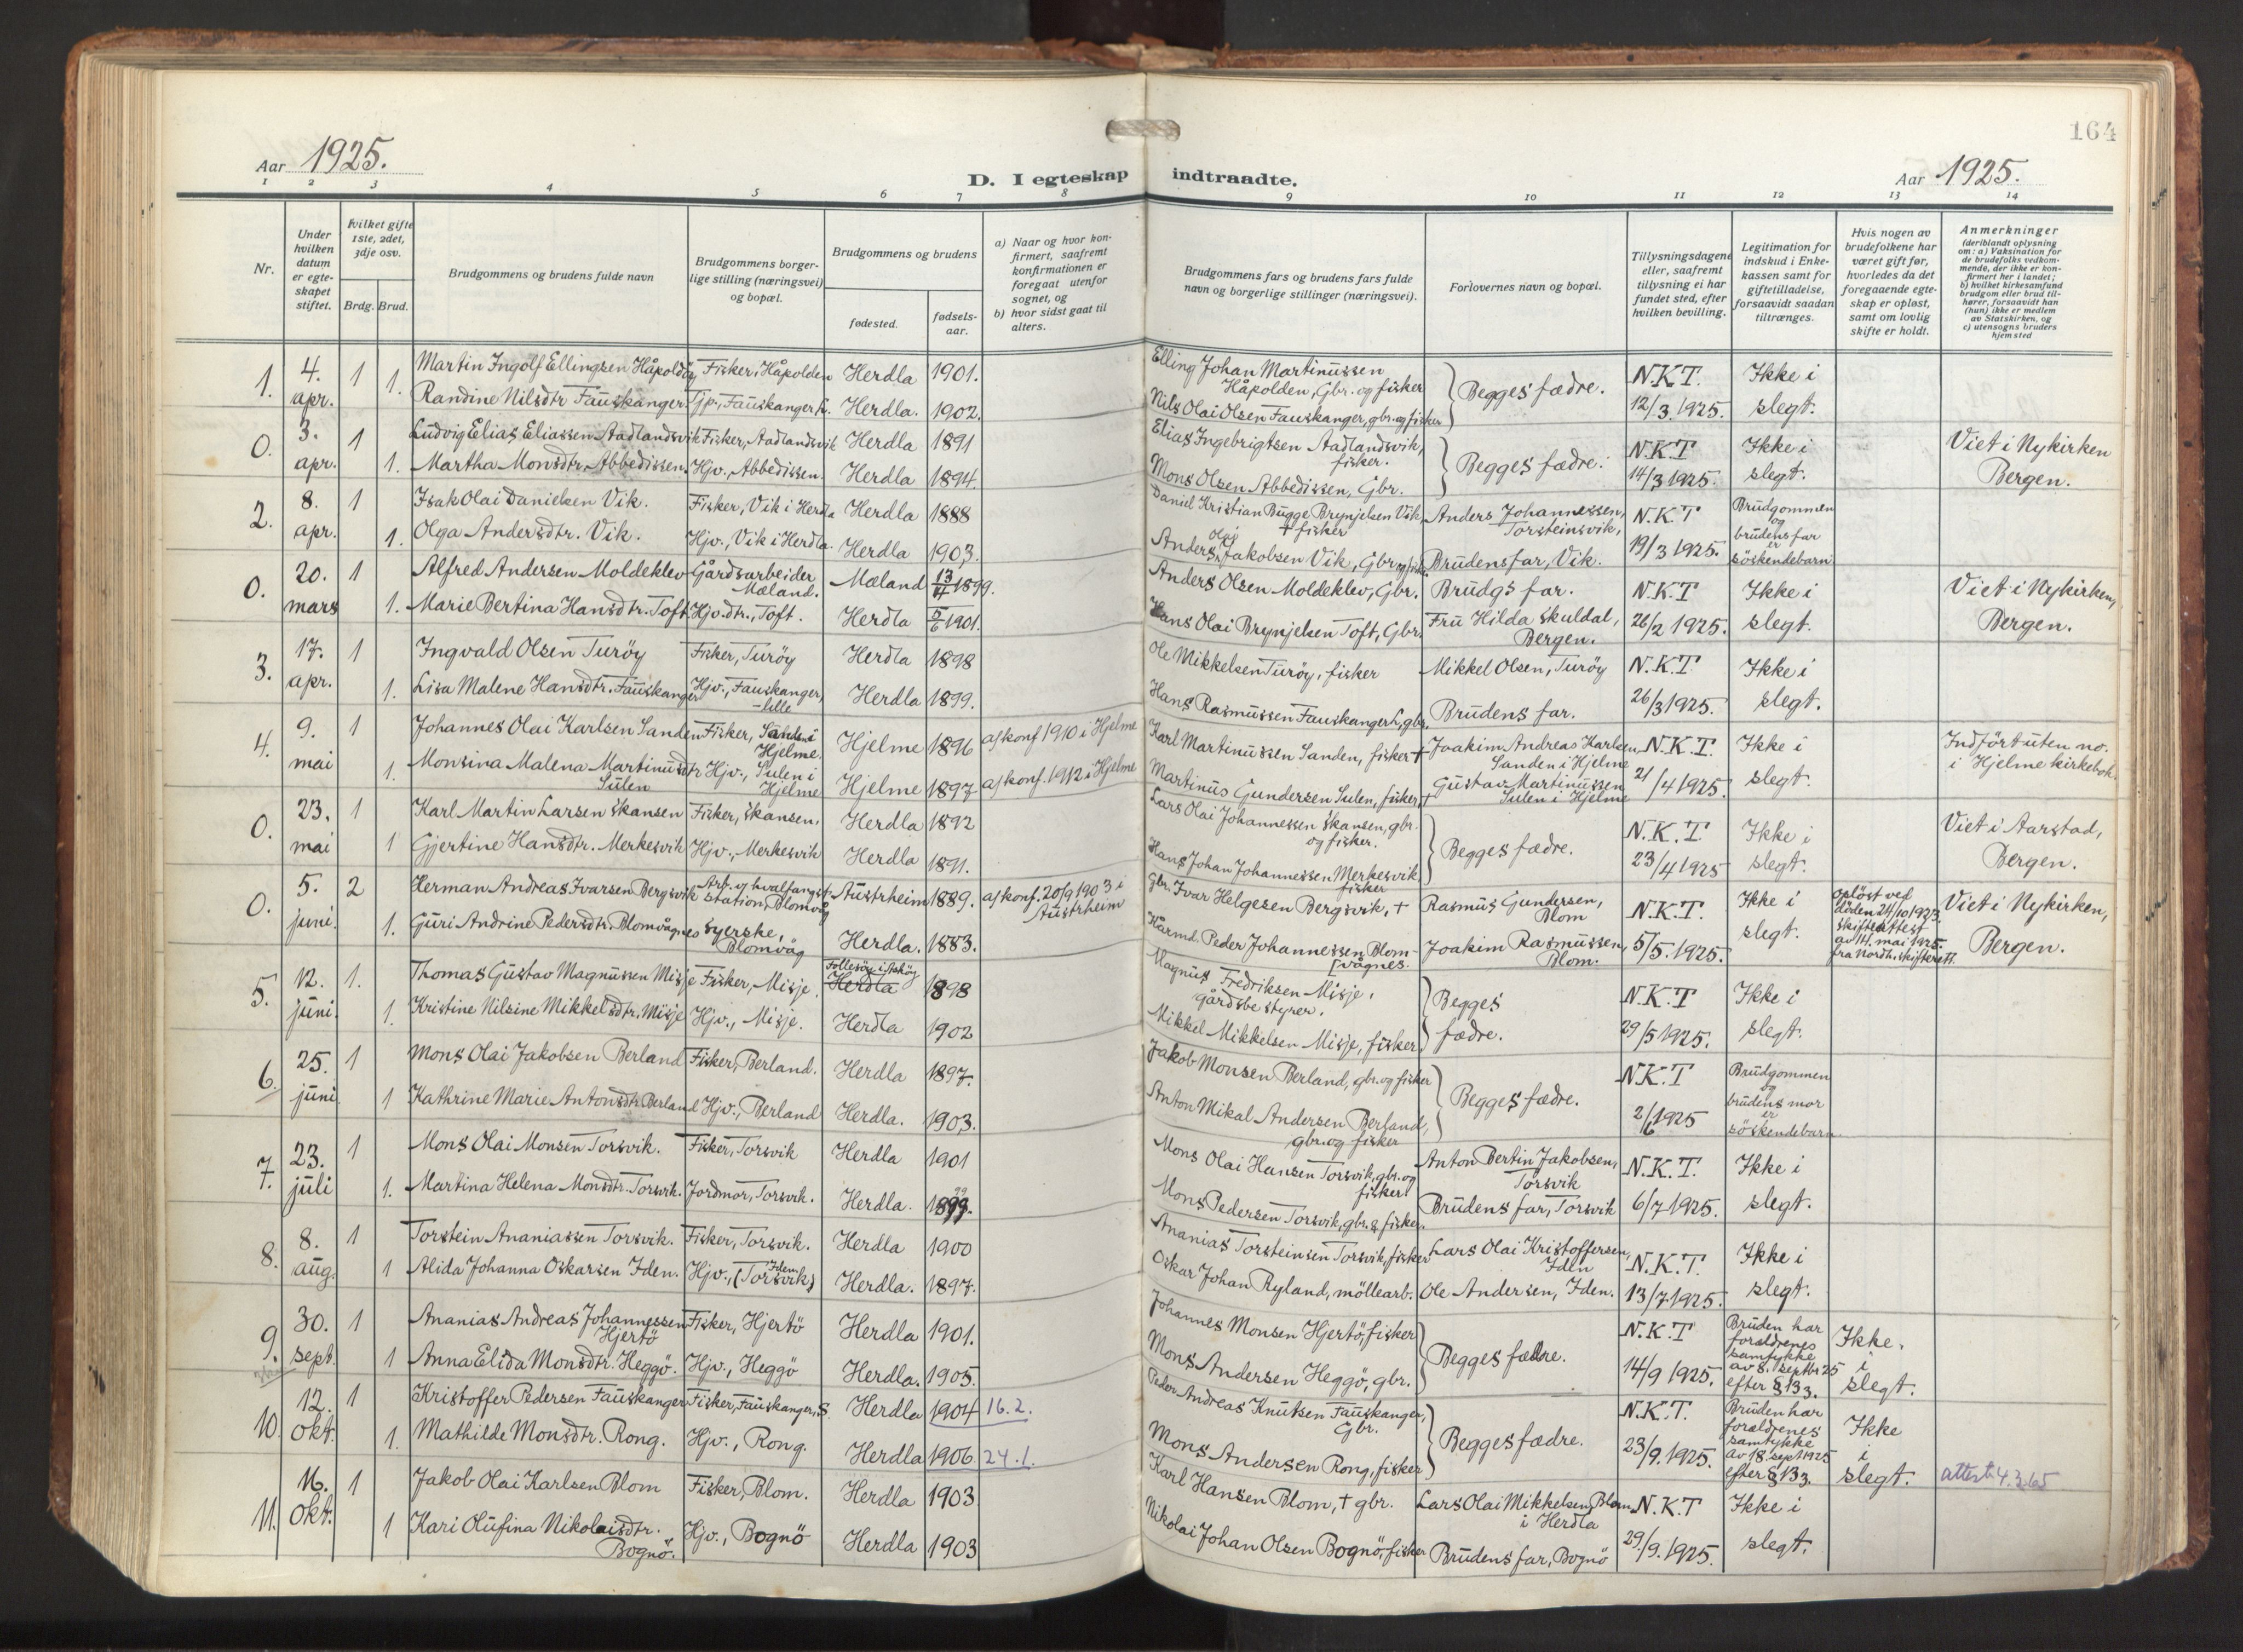 164
Aar 1925.
D. I egteskap indtraadte.
Aar 1925.
1 2 3 4 5 6 7 8 9 10 11 12 13 14
Nr.
Under hvilken datum er egteskapet stiftet.
Hvilket gifte 1ste, 2det, 3dje osv.
Brdg. Brud.
Brudgommens og brudens fulde navn
Brudgommens borgerlige stilling (næringsvei) og bopæl.
Brudgommens og brudens
fødested.
fødselsaar.
a) Naar og hvor konfirmert, saafremt konfirmationen er foregaat utenfor sognet, og
b) hvor sidst gaat til alters.
Brudgommens fars og brudens fars fulde navn og borgerlige stillinger (næringsvei).
Forlovernes navn og bopæl.
Tillysningsdagene eller, saafremt tillysning ei har fundet sted, efter hvilken bevilling.
Legitimation for indskud i Enkekassen samt for giftetilladelse, forsaavidt saadan tiltrænges.
Hvis nogen av brudefolkene har været gift før, hvorledes da det foregaaende egteskap er opløst, samt om lovlig skifte er holdt.
Anmerkninger (deriblandt oplysning om: a) Vaksination for de brudefolks vedkommende, der ikke er konfirmert her i landet; b) hvilket kirkesamfund brudgom eller brud tilhører, forsaavidt han (hun) ikke er medlem av Statskirken, og c) utensogns bruders hjemsted
1. 4. apr. 1 Martin Ingolf Ellingsen Håpoldöy Fisker, Håpolden Herdla 1901. Elling Johan Martinussen Håpolden, Gbr. og fisker Begges fædre. N.K.T. 12/3 1925. Ikke i slegt.
1. Randine Nilsdtr Fauskanger Tjp., Fauskanger l. Herdla. 1902. Nils Olai Olsen Fauskanger, gbr. og fisker
0. 3. apr. 1 Ludvig Elias Eliassen Aadlandsvik Fisker, Aadlandsvik Herdla 1891 Elias Ingebrigtsen Aadlandsvik, fisker. Begges fædre. N.K.T 14/3 1925. Ikke i slegt. Viet i Nykirken Bergen.
1. Martha Monsdtr. Abbedissen. Hjv., Abbedissen. Herdla 1894. Mons Olsen Abbedissen, Gbr.
2. 8. apr. 1 Isak Olai Danielsen Vik. Fisker, Vik i Herdla Herdla 1888 Daniel Kristian Bugge Brynjelsen Vik + fisker Anders Johannessen, Torsteinsvik, N.K.T 19/3 1925. Brudgommen og brudens far er söskendebarn
1. Olga Andersdtr. Vik. Hjv., Vik i Herdla. Herdla 1903. Anders Olai Jakobsen Vik, Gbr og fisker. Brudens far, Vik.
0. 20. mars 1 Alfred Andersen Moldeklev Gårdsarbeider Mæland. Mæland 13/11 1899. Anders Olsen Moldeklev, Gbr. Brudgs far. N.K.T 26/2 1925. Ikke i slegt. Viet i Nykirken, Bergen.
1. Marie Bertina Hansdtr. Toft. Hjv. dtr., Toft. Herdla 5/6 1901. Hans Olai Brynjelsen Toft, Gbr. Fru Hilda Skuldal, Bergen.
3. 17. apr. 1 Ingvald Olsen Turöy Fisker, Turöy Herdla 1898 Ole Mikkelsen Turöy, fisker Mikkel Olsen, Turöy N.K.T. 26/3 1925. Ikke i slegt.
1. Lisa Malene Hansdtr. Fauskanger Hjv., Fauskanger, -lille Herdla 1899. Hans Rasmussen Fauskanger l, gbr. Brudens far.
4. 9. mai 1 Johannes Olai Karlsen Sanden Fisker, Sanden i Hjelme. Hjelme 1896 a) konf 1910 i Hjelme Karl Martinussen Sanden, fisker + Joakim Andreas Karlsen Sanden i Hjelme N.K.T. 21/4 1925. Ikke i slegt. Indfört uten no. i Hjelme kirkebok.
1. Monsina Malena Martinusdtr Sulen Hjv., Sulen i Hjelme Hjelme 1897 a) konf. 1912 i Hjelme Martinus Gundersen Sulen, fisker, + Gustav Martinussen Sulen i Hjelme
0. 23. mai 1 Karl Martin Larsen Skansen Fisker, Skansen, Herdla 1892 Lars Olai Johannessen Skansen, gbr. og fisker. Begges fædre. N.K.T. 23/4 1925 Ikke i slegt. Viet i Aarstad, Bergen.
1 Gjertine Hansdtr. Merkesvik Hjv., Merkesvik Herdla 1891. Hans Johan Johannessen Merkesvik fisker
0. 5. juni 2 Herman Andreas Ivarsen Bergsvik Arb. og hvalfangst-station, Blomvåg Austrheim 1889. a) konf. 20/9 1903 i Austrheim Gbr. Ivar Helgesen Bergsvik, + Rasmus Gundersen, Blom N.K.T. 5/5 1925. Ikke i slegt. oplöst ved döden 24/10 1923. Skifteattest av 14. mai 1925. fra Nordh. skifterett. Viet i Nykirken, Bergen.
1. Guri Andrine Pedersdtr. Blomvågnes Syerske, Blomvåg Herdla. 1883. Kårmd. Peder Johannessen Blomvågnes. Joakim Rasmussen, Blom.
5. 12. juni. 1. Thomas Gustav Magnussen Misje Fisker, Misje. Follesöy i Asköy Herdla 1898 Magnus Fredriksen Misje, gårdsbestyrer. Begges fædre. N.K.T 29/5 1925. Ikke i slegt.
1. Kristine Nilsine Mikkelsdtr. Misje Hjv., Misje. Herdla 1902 Mikkel Mikkelsen Misje, fisker
6. 25. juni. 1 Mons Olai Jakobsen Berland Fisker, Berland. Herdla 1897. Jakob Monsen Berland, gbr. og fisker Begges fædre. N.K.T 2/6 1925 Brudgommen og brudens mor er söskendebarn.
1 Kathrine Marie Antonsdtr Berland Hjv., Berland Herdla. 1903. Anton Mikal Andersen Berland, gbr. og fisker
7. 23. juli 1 Mons Olai Monsen Torsvik. Fisker, Torsvik Herdla 1901 Mons Olai Hansen Torsvik, gbr. og fisker Anton Bertin Jakobsen, Torsvik N.K.T. 6/7 1925. Ikke i slegt.
1. Martina Helena Monsdtr. Torsvik. Jordmor, Torsvik. Herdla. 1899. Mons Pedersen Torsvik, gbr. & fisker. Brudens far, Torsvik
8. 8. aug. 1 Torstein Ananiassen Torsvik. Fisker, Torsvik. Herdla 1900 Ananias Torsteinsen Torsvik, fisker Lars Olai Kristoffersen, Iden N.K.T. 13/7 1925. Ikke i slegt.
1 Alida Johanna Oskarsen Iden. Hjv., (Torsvik) Iden Herdla. 1897. Oskar Johan Ryland, möllearb. Ole Andersen, Iden.
9. 30. sept. 1 Ananias Andreas Johannessen Hjertö Fisker, Hjertö Herdla 1901. Johannes Monsen Hjertö, fisker Begges fædre. N.K.T 14/9 1925. Bruden har forældrenes samtykke av 8. septbr 25 efter § 13 3. Ikke i slegt.
1 Anna Elida Monsdtr. Heggö. Hjv., Heggö Herdla. 1905. Mons Andersen Heggö, gbr.
10. 12. okt. 1 Kristoffer Pedersen Fauskanger Fisker, Fauskanger, S. Herdla 1904 16.2. Peder Andreas Knutsen Fauskanger, Gbr. Begges fædre. N.K.T. 23/9. 1925. Bruden har forældrenes samtykke av 18. sept 1925 efter § 13 3. Ikke i slegt. attest 4.3.65
1. Mathilde Monsdtr. Rong. Hjv., Rong. Herdla 1906 24.1. Mons Andersen Rong, fisker
11. 16. okt. 1 Jakob Olai Karlsen Blom Fisker, Blom. Herdla 1903 Karl Hansen Blom, + gbr. Lars Olai Mikkelsen Blom i Herdla N.K.T 29/9. 1925. Ikke i slegt.
1 Kari Olufina Nikolaisdtr. Bognö. Hjv., Bognö Herdla 1903 Nikolai Johan Olsen Bognö, fisker Brudens far, Bognö